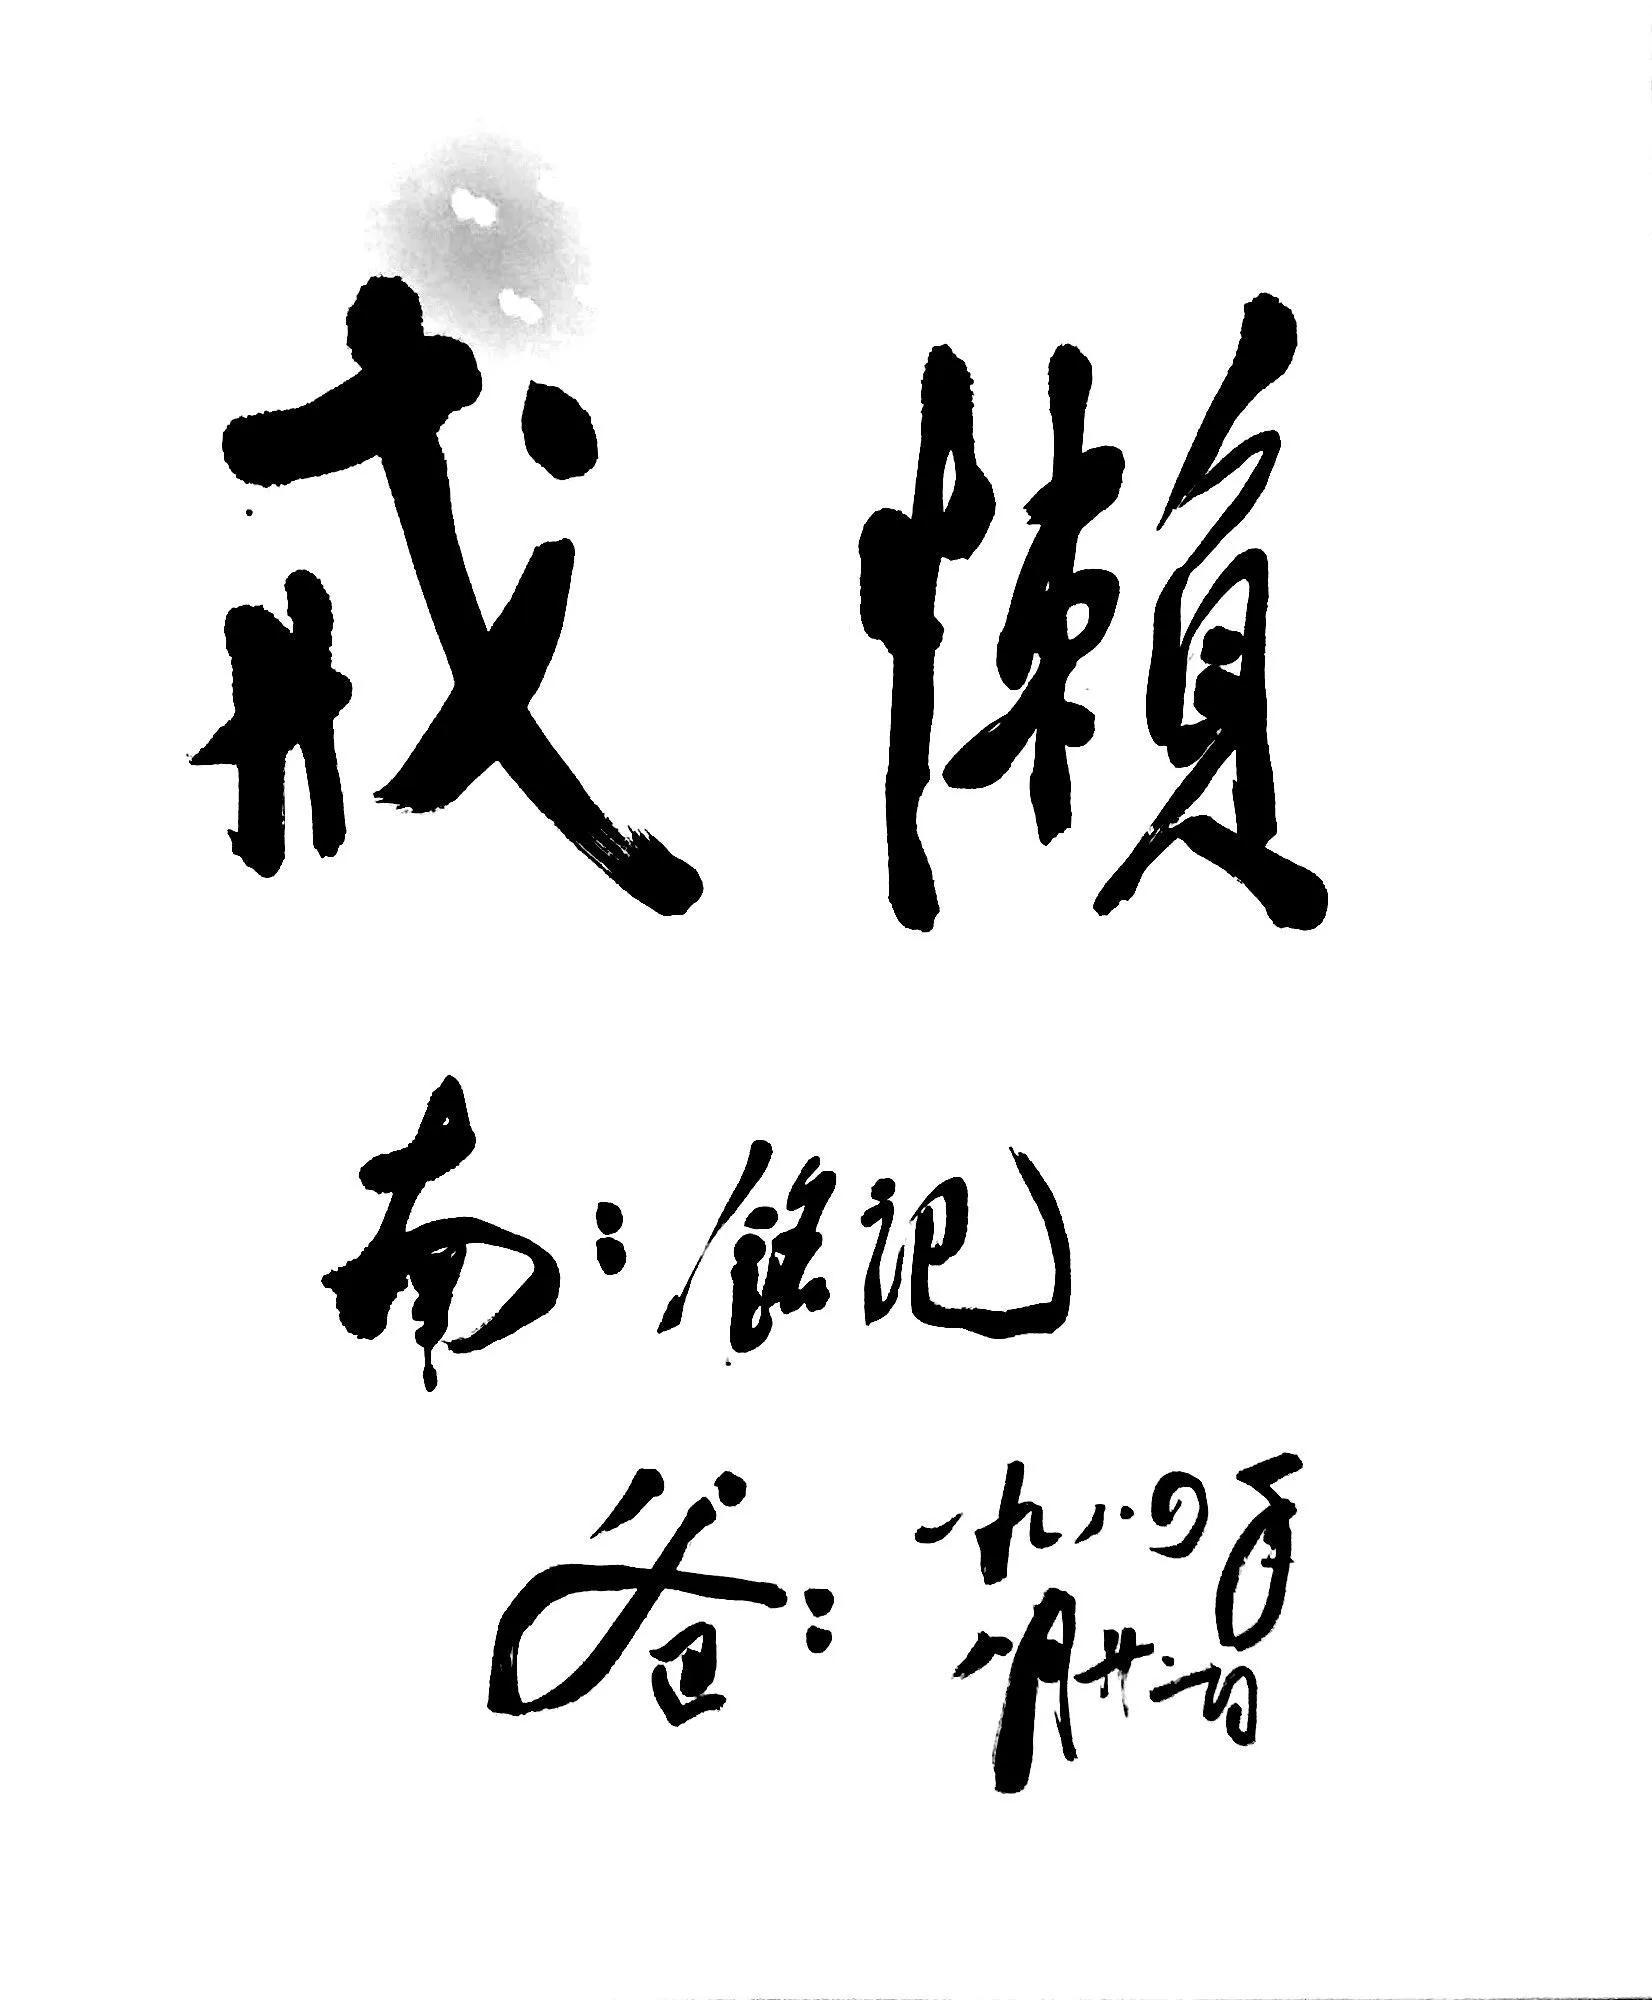 戒懶
南：銘記
爸：一九八四年
八月廿二日